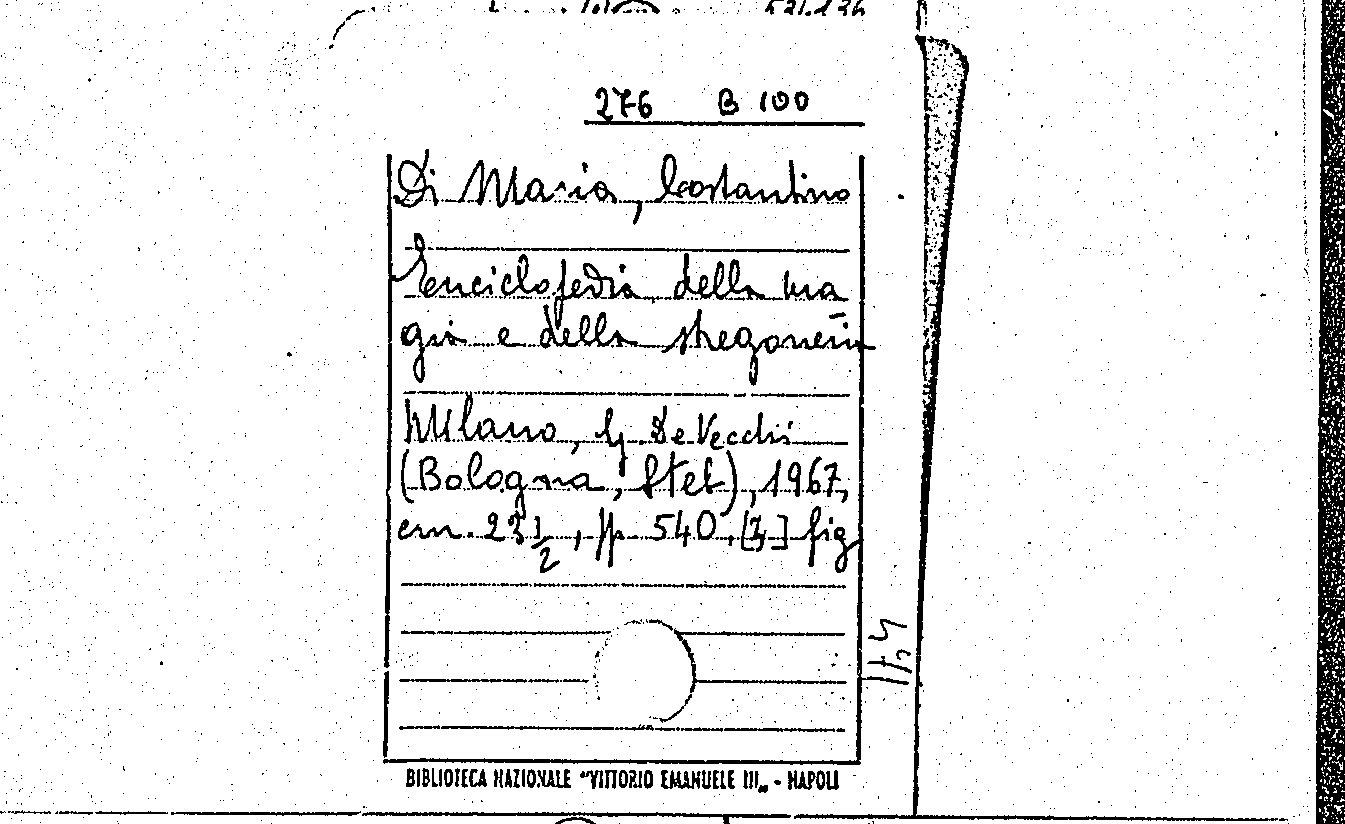 276 B 100
Di Maria, Costantino
Enciclopedia della ma
gia e della stregoneria
Milano, G. De Vecchi
(Bologna, Steb), 1967,
cm. 23 1/2, pp. 540, [3] fig
BIBLIOTECA NAZIONALE "VITTORIO EMANUELE III„ - NAPOLI